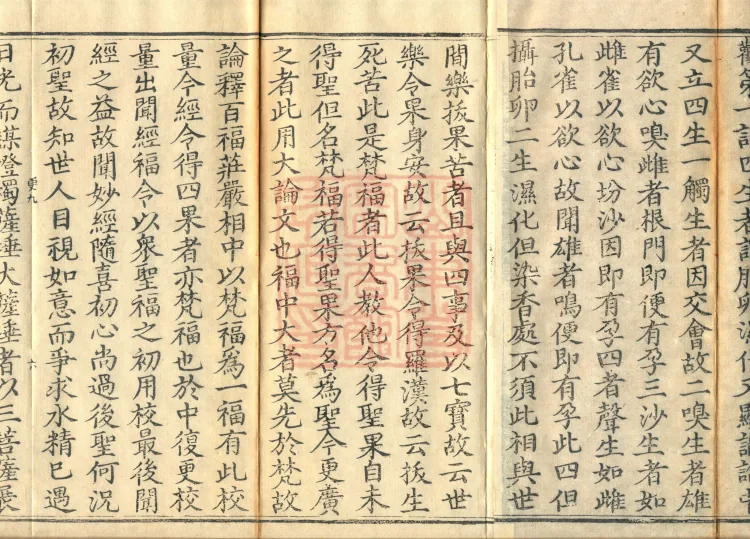 四生者
又立四生一觸生者因交會故二嗅生者雄
有欲心嗅雌者根門即便有孕三沙生者如
雌雀以欲心坋沙因即有孕四者聲生如雌
孔雀以欲心故聞雄者鳴便即有孕此四但
攝胎卵二生濕化但染香處不須此相與世
間樂拔果苦者且與四事及以七寶故云世
樂令果身安故云拔果令得羅漢故云拔生
死苦此是梵福者此人教他令得聖果自未
得聖但名梵福若得聖果方名為聖今更廣
之者此用大論文也福中大者莫先於梵故
論釋百福莊嚴相中以梵福為一福有此校
量今經令得四果者亦梵福也於中復更校
量出聞經福令以眾聖福之初用校最後聞
經之益故聞妙經隨喜初心尚過後聖何況
初聖故知世人目視如意而爭求水精已遇
更九 六
日光而謀燈燭薩埵大薩埵者以三菩薩展